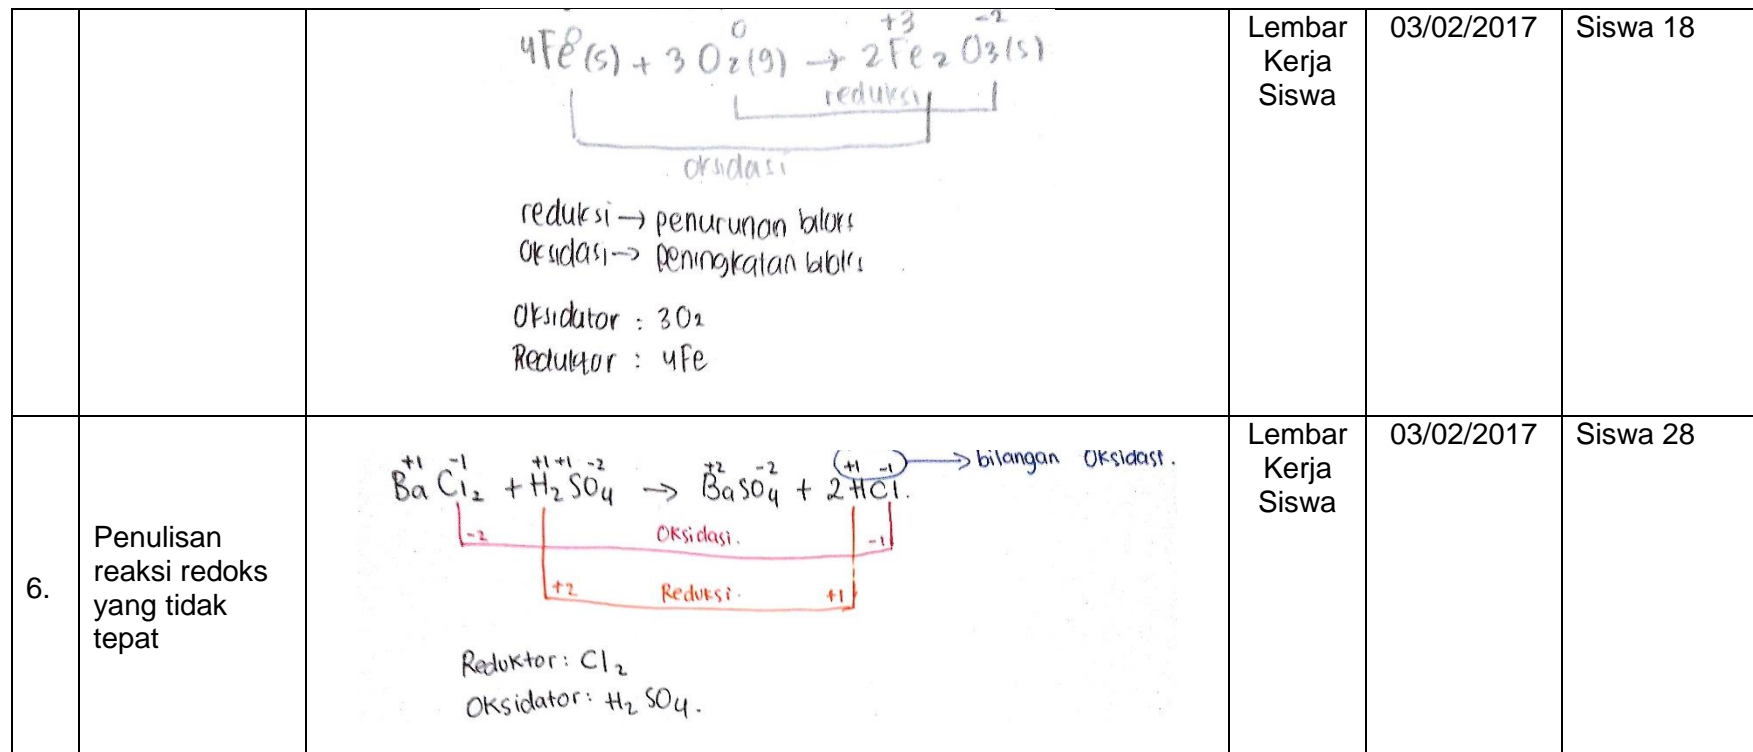 0 0 +3 -2
4Fe(s) + 3 O2(g) → 2Fe2 O3(s)
reduksi
oksidasi
reduksi → penurunan biloks
oksidasi → peningkatan biloks
Oksidator : 3O2
Reduktor : 4Fe
Lembar
Kerja
Siswa
03/02/2017
Siswa 18
6.
Penulisan
reaksi redoks
yang tidak
tepat
+1 -1 +1 +1 -2 +2 -2 +1 -1 → bilangan Oksidasi.
Ba Cl2 + H2 SO4 → BaSO4 + 2HCl.
-2 Oksidasi. -1
+2 Reduksi. +1
Reduktor: Cl2
Oksidator: H2 SO4.
Lembar
Kerja
Siswa
03/02/2017
Siswa 28